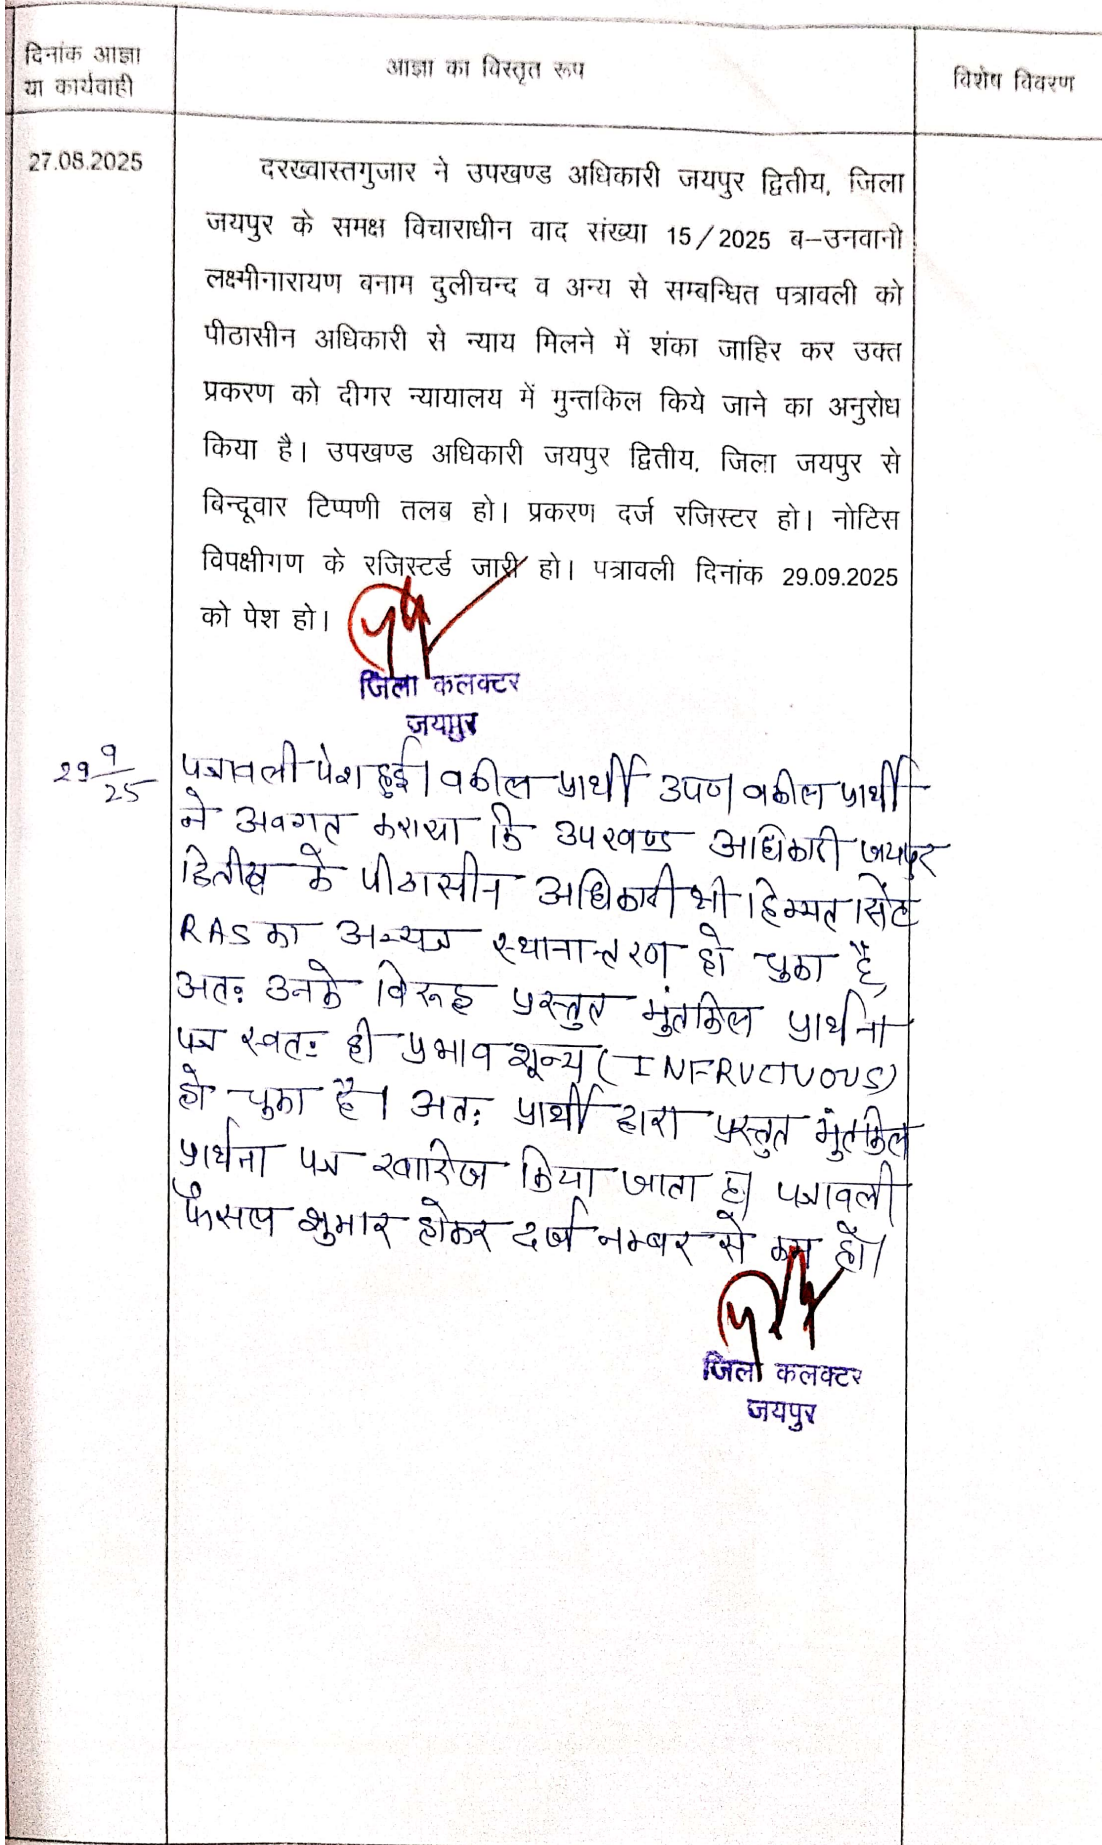 दिनांक आज्ञा
या कार्यवाही
आज्ञा का विस्तृत रूप
विशेष विवरण
27.08.2025
दरख्वास्तगुजार ने उपखण्ड अधिकारी जयपुर द्वितीय, जिला
जयपुर के समक्ष विचाराधीन वाद संख्या 15/2025 ब–उनवानी
लक्ष्मीनारायण बनाम दुलीचन्द व अन्य से सम्बन्धित पत्रावली को
पीठासीन अधिकारी से न्याय मिलने में शंका जाहिर कर उक्त
प्रकरण को दीगर न्यायालय में मुन्तकिल किये जाने का अनुरोध
किया है। उपखण्ड अधिकारी जयपुर द्वितीय, जिला जयपुर से
बिन्दूवार टिप्पणी तलब हो। प्रकरण दर्ज रजिस्टर हो। नोटिस
विपक्षीगण के रजिस्टर्ड जारी हो। पत्रावली दिनांक 29.09.2025
को पेश हो।
जिला कलक्टर
जयपुर
29 9/25
पत्रावली पेश हुई। वकील प्रार्थी उप०। वकील प्रार्थी
ने अवगत कराया कि उपखण्ड अधिकारी जयपुर
द्वितीय के पीठासीन अधिकारी श्री हिम्मत सिंह
RAS का अन्यत्र स्थानान्तरण हो चुका है,
अतः उनके विरूद्ध प्रस्तुत मुंतकिल प्रार्थना
पत्र स्वतः ही प्रभाव शून्य (INFRUCTUOUS)
हो चुका है। अतः प्रार्थी द्वारा प्रस्तुत मुंतकिल
प्रार्थना पत्र खारिज किया जाता है। पत्रावली
फैसल शुमार होकर दर्ज नम्बर से कम हो।
जिला कलक्टर
जयपुर